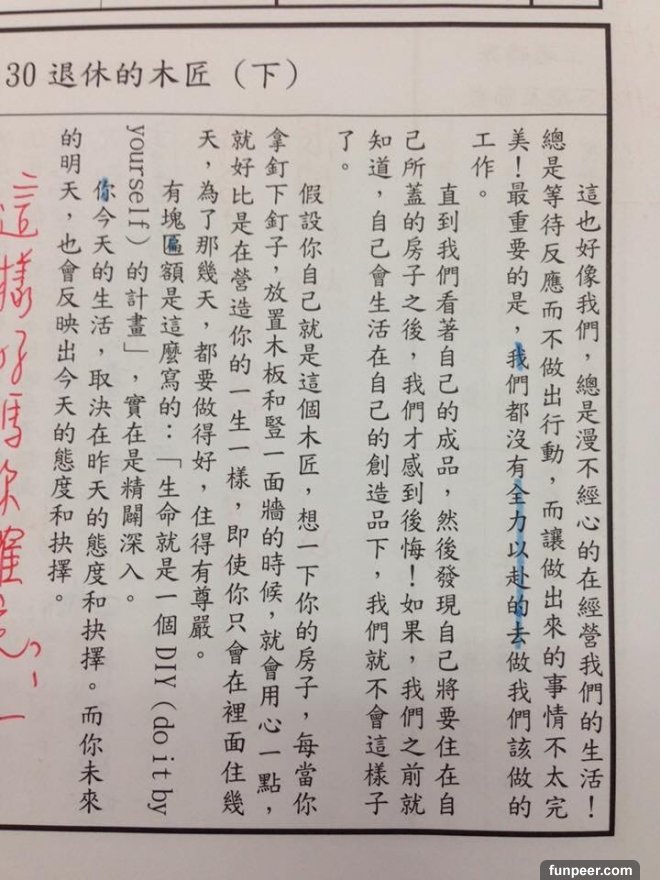 30 退休的木匠（下）
這也好像我們，總是漫不經心的在經營我們的生活！
總是等待反應而不做出行動，而讓做出來的事情不太完
美！最重要的是，我們都沒有全力以赴的去做我們該做的
工作。
直到我們看著自己的成品，然後發現自己將要住在自
己所蓋的房子之後，我們才感到後悔！如果，我們之前就
知道，自己會生活在自己的創造品下，我們就不會這樣子
了。
假設你自己就是這個木匠，想一下你的房子，每當你
拿釘下釘子，放置木板和豎一面牆的時候，就會用心一點，
就好比是在營造你的一生一樣，即使你只會在裡面住幾
天，為了那幾天，都要做得好，住得有尊嚴。
有塊匾額是這麼寫的：「生命就是一個 DIY（do it by
yourself）的計畫」，實在是精闢深入。
你今天的生活，取決在昨天的態度和抉擇。而你未來
的明天，也會反映出今天的態度和抉擇。
這樣好嗎你確定？
funpeer.com